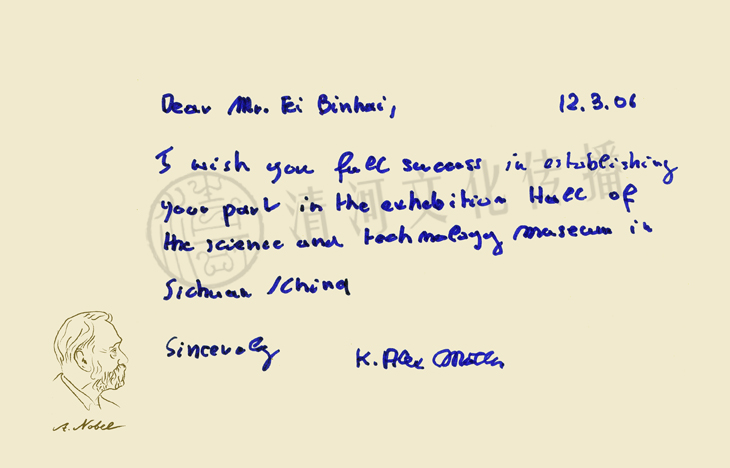 Dear Mr. Fei Binhai, 12.3.06
I wish you full success in establishing
your part in the exhebition Hall of
the science and technology museum in
Sichuan / China
Sincerely K. Alex Müller
A. Nobel
清河文化传播